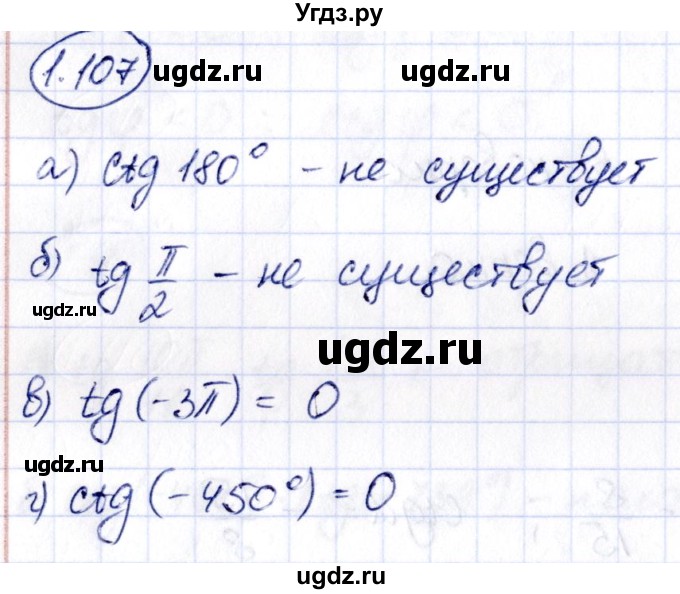 Угдз.ру
1.107
ugdz.ru ugdz.ru
а) ctg 180° - не существует
б) tg π/2 - не существует
ugdz.ru
ugdz.ru
в) tg (-3π) = 0
ugdz.ru
г) ctg (-450°) = 0
ugdz.ru